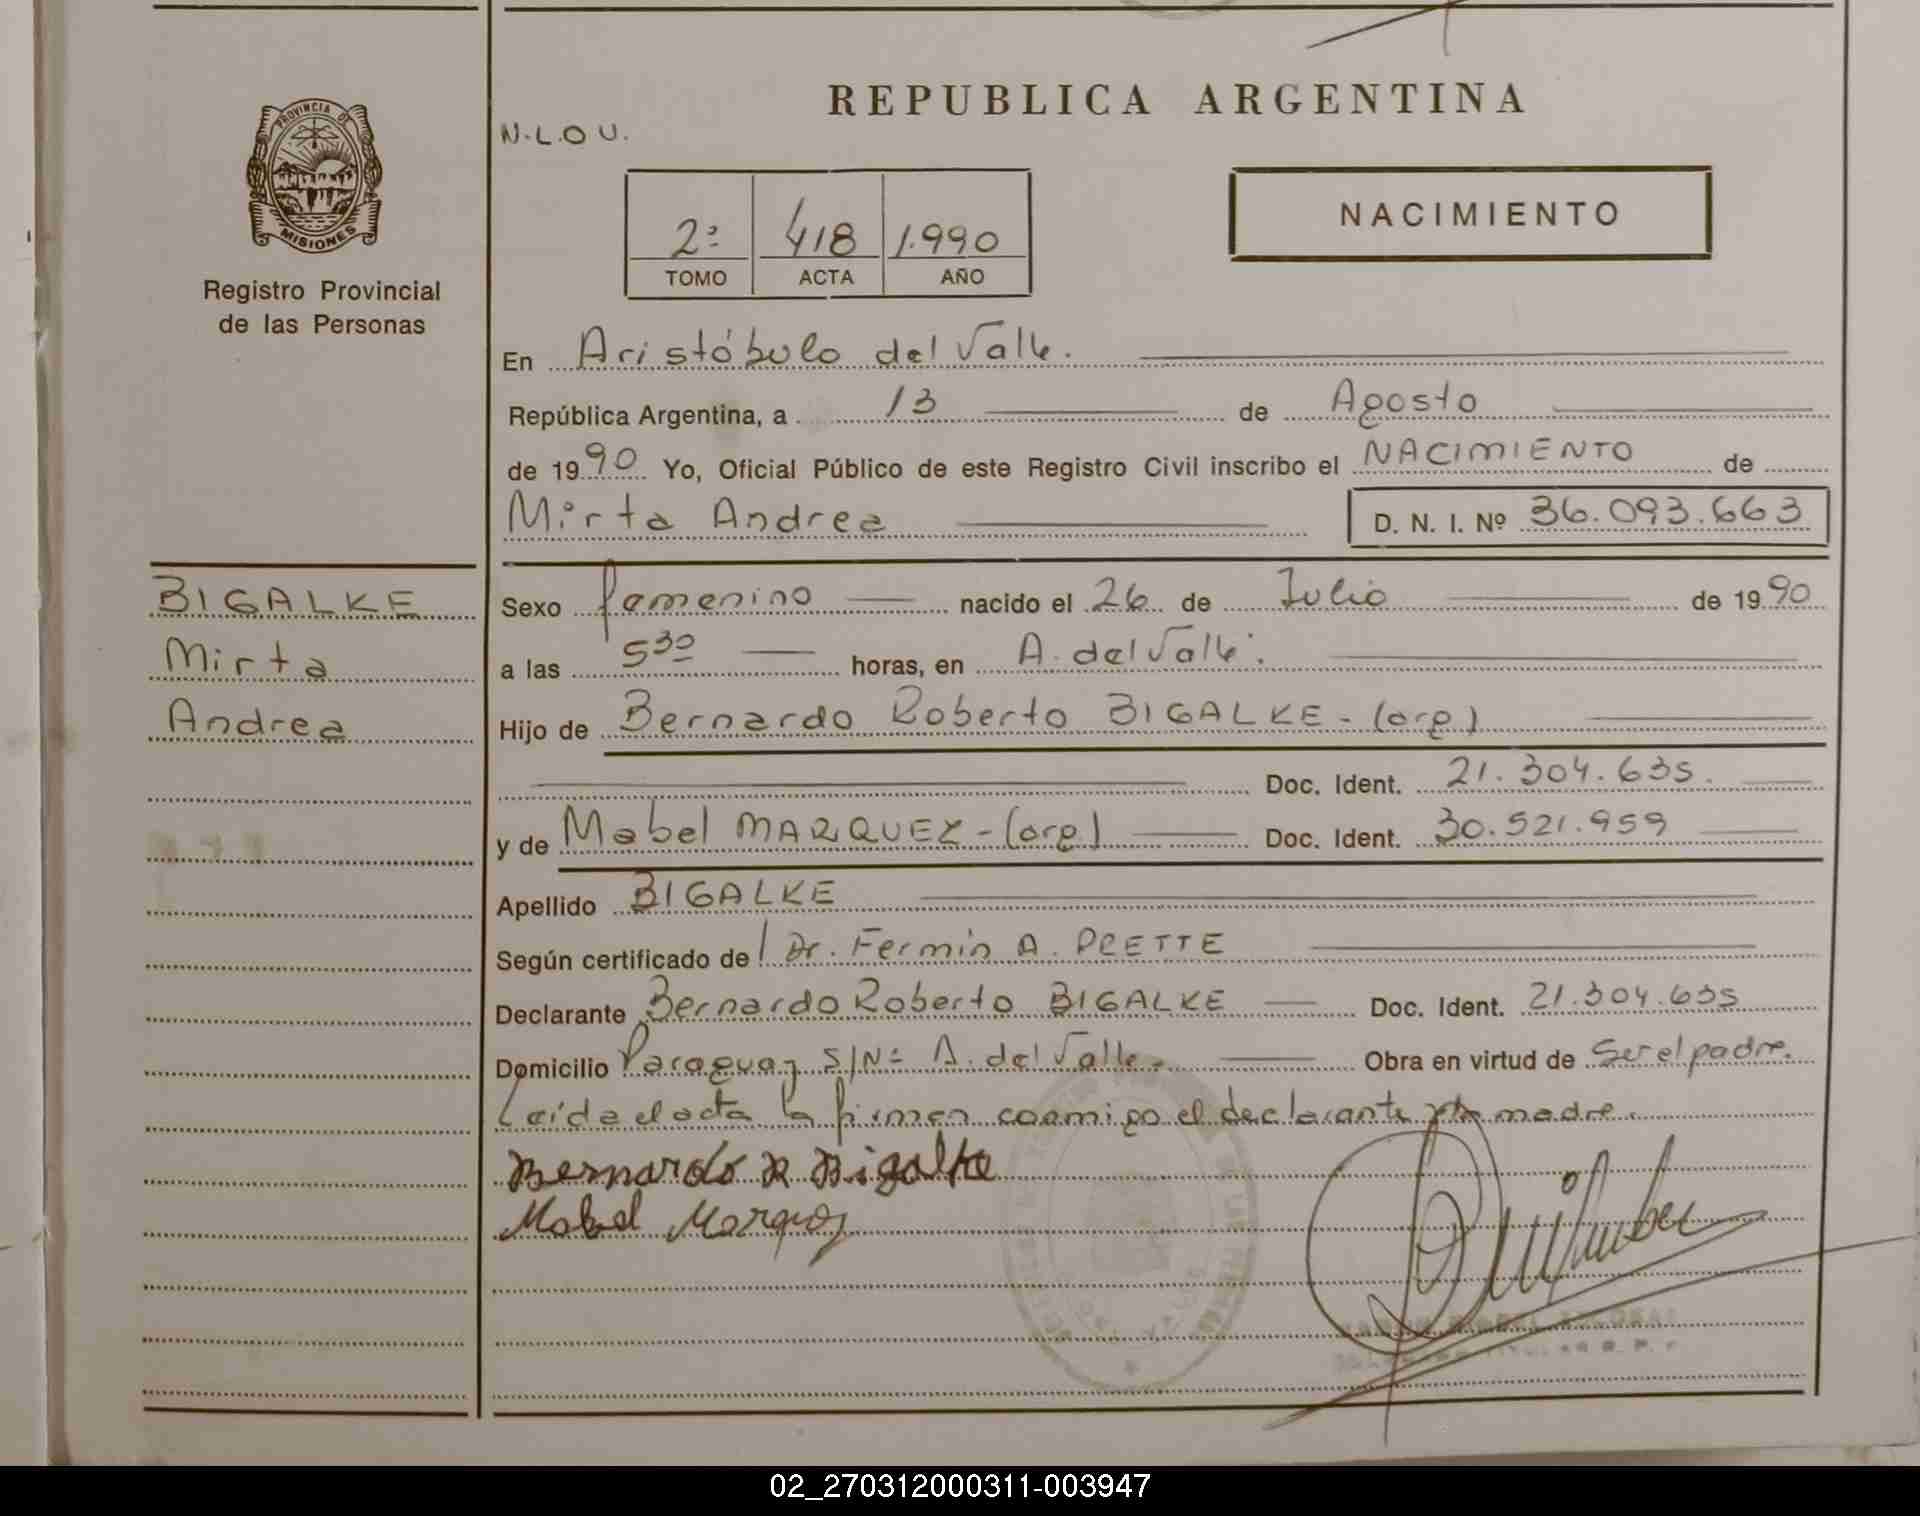 PROVINCIA DE
MISIONES
Registro Provincial
de las Personas
BIGALKE
Mirta
Andrea
REPUBLICA ARGENTINA
N.L.O.U.
2º 418 1.990
TOMO ACTA AÑO
NACIMIENTO
En Aristóbulo del Valle.
República Argentina, a 13 de Agosto
de 1990 Yo, Oficial Público de este Registro Civil inscribo el NACIMIENTO de
Mirta Andrea D. N. I. Nº 36.093.663
Sexo femenino nacido el 26 de Julio de 1990
a las 5 30 horas, en A. del Valle.
Hijo de Bernardo Roberto BIGALKE - (arg)
Doc. Ident. 21.304.635.
y de Mabel MARQUEZ - (arg) Doc. Ident. 30.521.959
Apellido BIGALKE
Según certificado de Dr. Fermin A. PRETTE
Declarante Bernardo Roberto BIGALKE Doc. Ident. 21.304.635
Domicilio Paraguay S/Nº A. del Valle. Obra en virtud de Ser el padre.
Leída el acta la firman conmigo el declarante y la madre.
Bernardo R Bigalke
Mabel Marquez
02_270312000311-003947